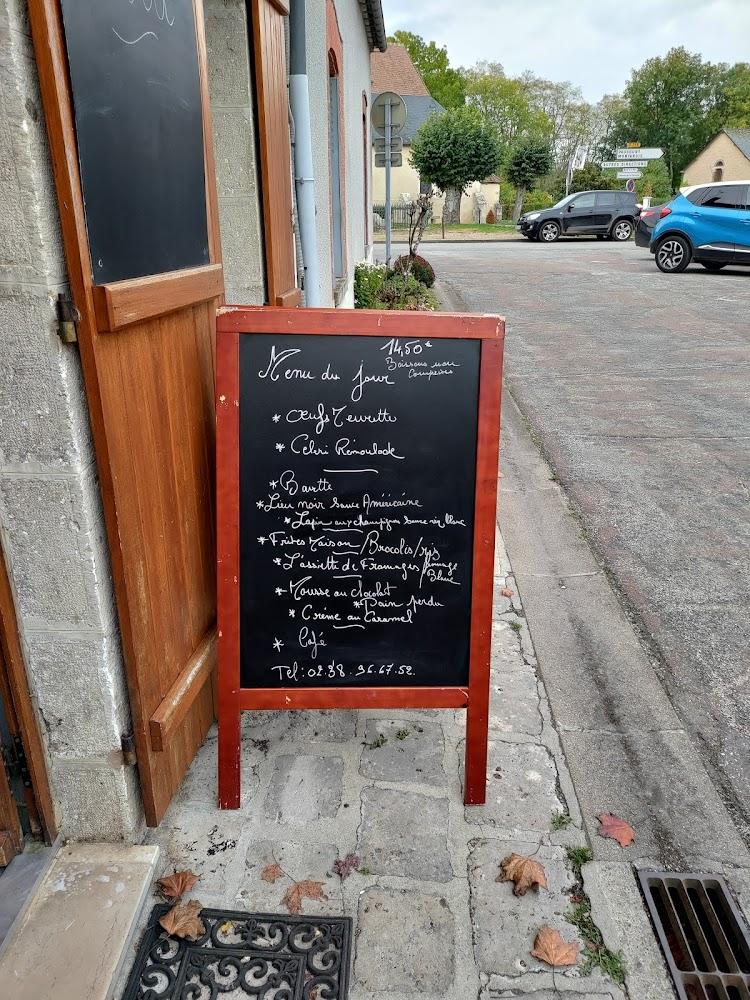 14,50€
Menu du jour
Boissons non
Comprises
* Œufs Meurette
* Céleri Rémoulade
* Bavette
* Lieu noir Sauce Américaine
* Lapin aux champignons Sauce vin blanc
* Frites Maison / Brocolis / ris
* L'assiette de Fromages / fromage
Blanc
* Mousse au chocolat
* Pain perdu
* Crème au Caramel
* Café
Tél: 02.38.96.67.52.
AUTRES DIRECTIONS